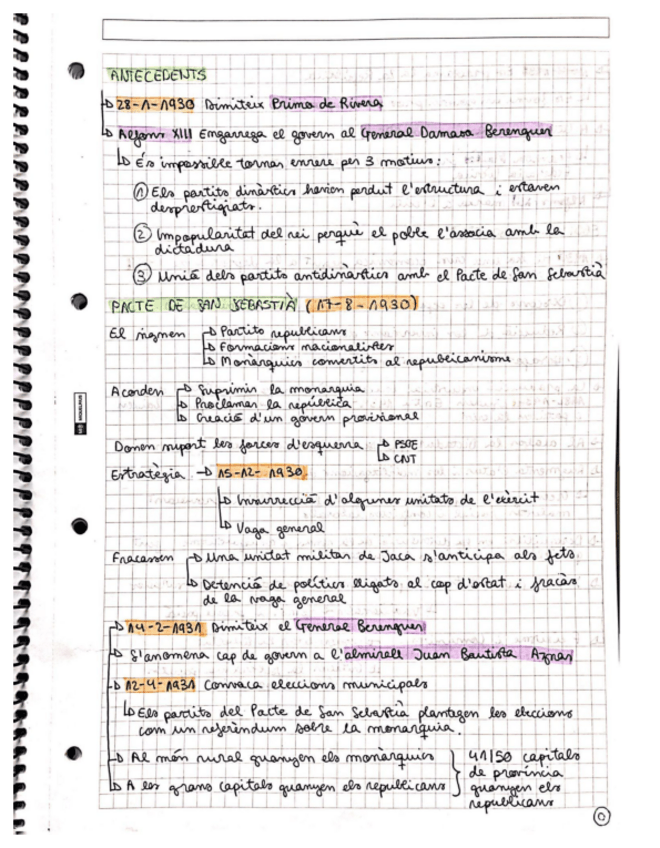 ANTECEDENTS
↳ 28-1-1930 Dimiteix Primo de Rivera
↳ Alfons XIII Engarrega el govern al General Damaso Berenguer
↳ És impossible tornar enrere per 3 motius:
① Els partits dinàstics havien perdut l'estructura i estaven
desprestigiats.
② Impopularitat del rei perquè el poble l'associa amb la
dictadura
③ Unió dels partits antidinàstics amb el Pacte de San Sebastià
PACTE DE SAN SEBASTIÀ (17-8-1930)
El signen ↳ Partits republicans
↳ Formacions nacionalistes
↳ Monàrquics convertits al republicanisme
Acorden ↳ Suprimir la monarquia
↳ Proclamar la república
↳ Creació d'un govern provisional
Donen suport les forces d'esquerra ↳ PSOE
↳ CNT
Estratègia → 15-12-1930
↳ Insurrecció d'algunes unitats de l'exèrcit
↳ Vaga general
Fracassen ↳ Una unitat militar de Jaca s'anticipa als fets
↳ Detenció de polítics lligats al cop d'estat i fracàs
de la vaga general
↳ 14-2-1931 Dimiteix el General Berenguer
↳ S'anomena cap de govern a l'almirall Juan Bautista Aznar
↳ 12-4-1931 Convoca eleccions municipals
↳ Els partits del Pacte de San Sebastià plantegen les eleccions
com un referèndum sobre la monarquia.
↳ Al món rural guanyen els monàrquics
↳ A les grans capitals guanyen els republicans
41/50 capitals
de província
guanyen els
republicans
0